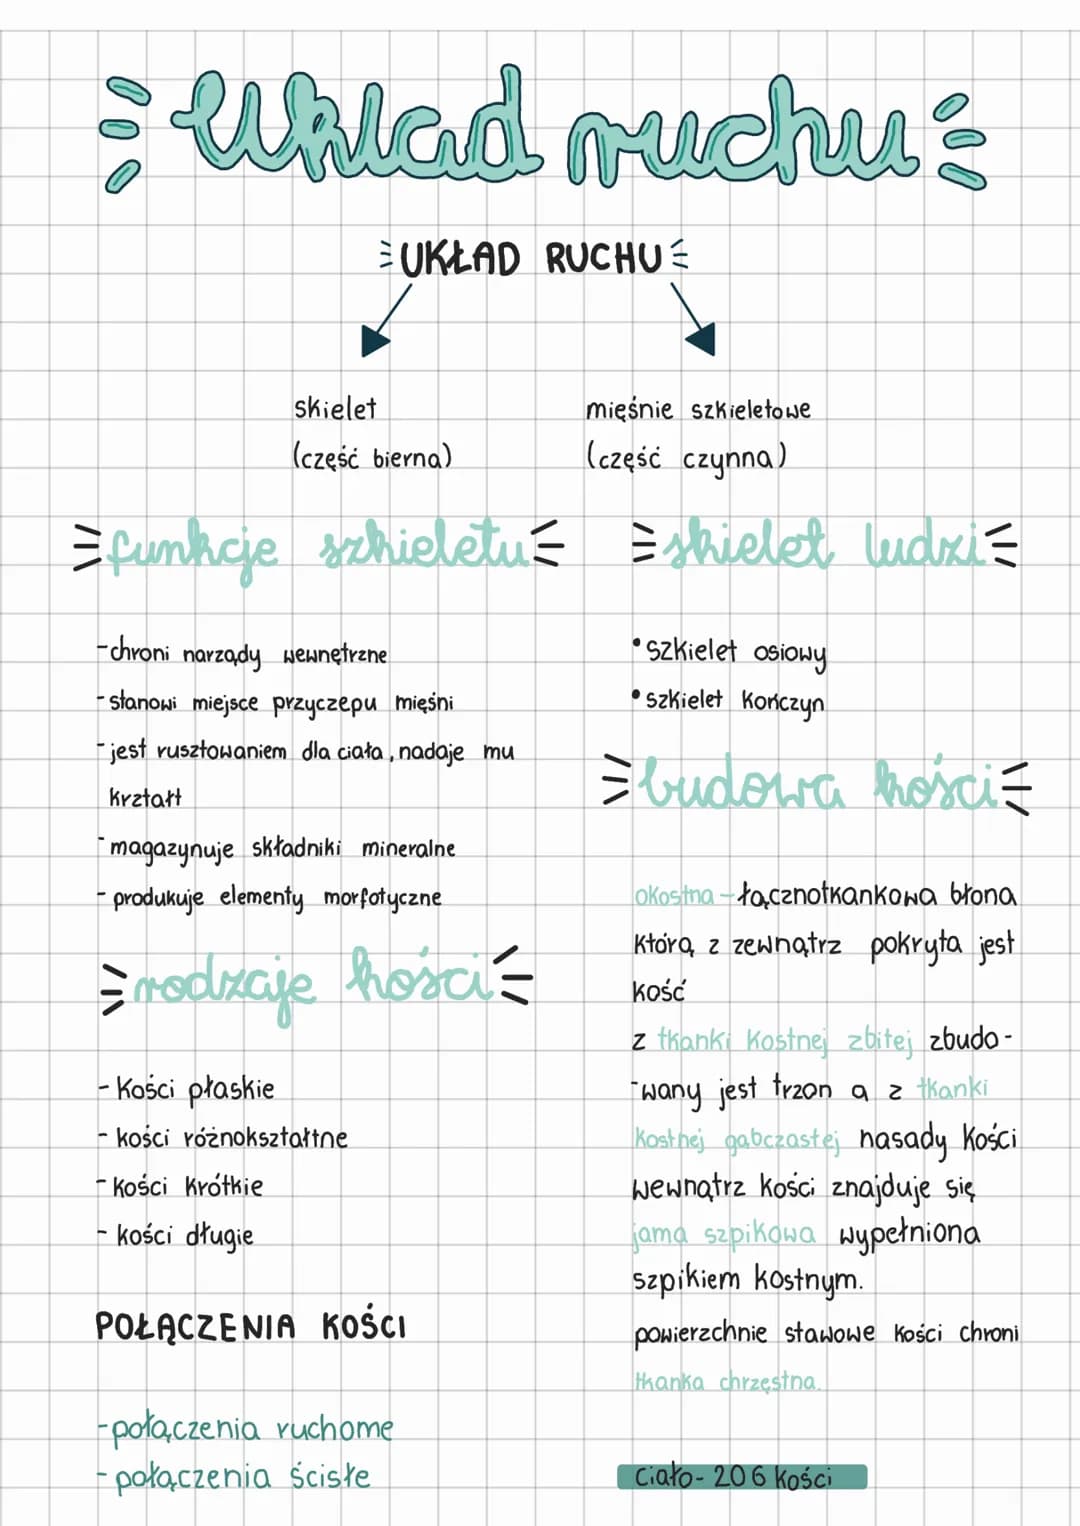 Układ ruchu
UKŁAD RUCHU
skielet
(część bierna)
mięśnie szkieletowe
(część czynna)
funkcje szkieletu
-chroni narządy wewnętrzne
-stanowi miejsce przyczepu mięśni
-jest rusztowaniem dla ciała, nadaje mu
kształt
-magazynuje składniki mineralne
- produkuje elementy morfotyczne
rodzaje kości
- Kości płaskie
- kości różnokształtne
- kości krótkie
- kości długie
POŁĄCZENIA KOŚCI
-połączenia ruchome
- połączenia ścisłe
skielet ludzi
•szkielet osiowy
•szkielet kończyn
budowa kości
okostna - łącznotkankowa błona
którą z zewnątrz pokryta jest
kość
z tkanki kostnej zbitej zbudo-
-wany jest trzon a z tkanki
kostnej gąbczastej nasady kości
wewnątrz kości znajduje się
jama szpikowa wypełniona
szpikiem kostnym.
powierzchnie stawowe kości chroni
tkanka chrzęstna.
Ciało- 206 kości